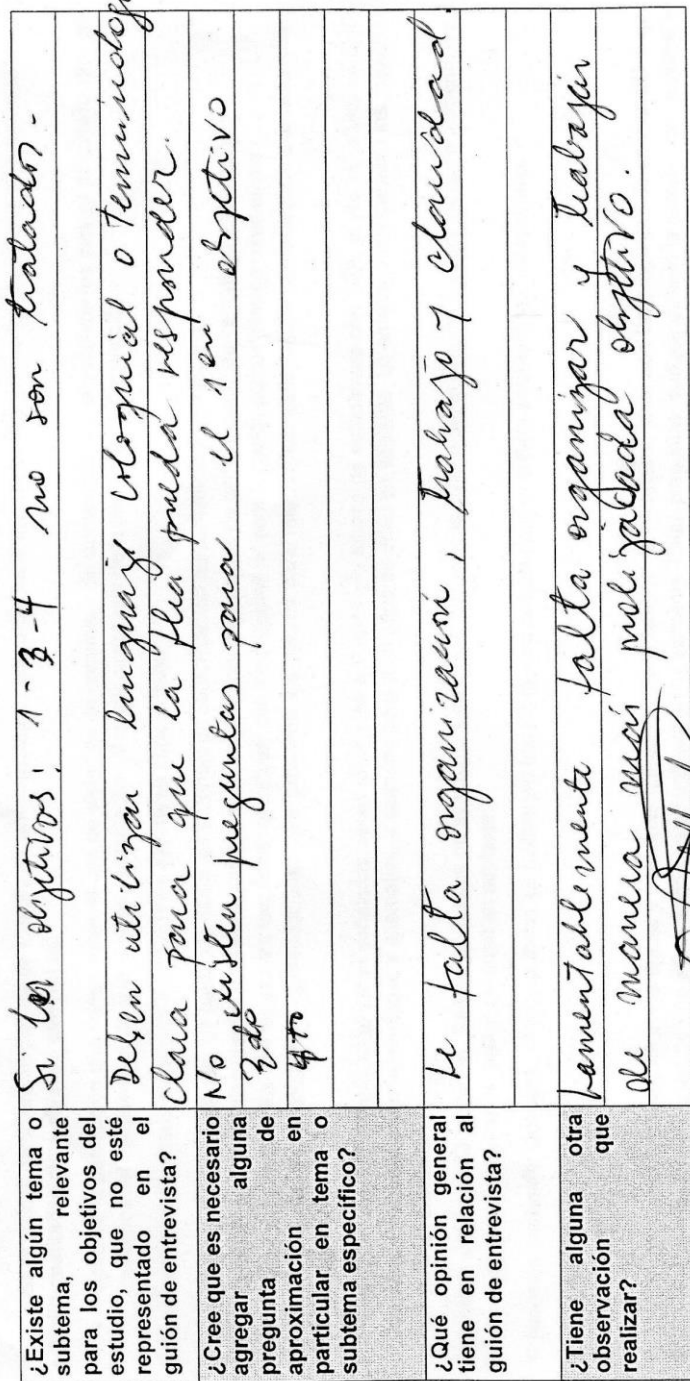 ¿Existe algún tema o
subtema, relevante
para los objetivos del
estudio, que no esté
representado en el
guión de entrevista?
Si los objetivos: 1-3-4 no son tratados.-
Deben utilizar lenguaje coloquial o terminolog
clara para que la pueda responder
¿Cree que es necesario
agregar alguna
pregunta de
aproximación en
particular en tema o
subtema específico?
No existen preguntas para el 1 er objetivo
4to
¿Qué opinión general
tiene en relación al
guión de entrevista?
Le falta organización, trabajo y claridad.
¿Tiene alguna otra
observación que
realizar?
Lamentablemente falta organizar y trabajar
de manera más objetivo.